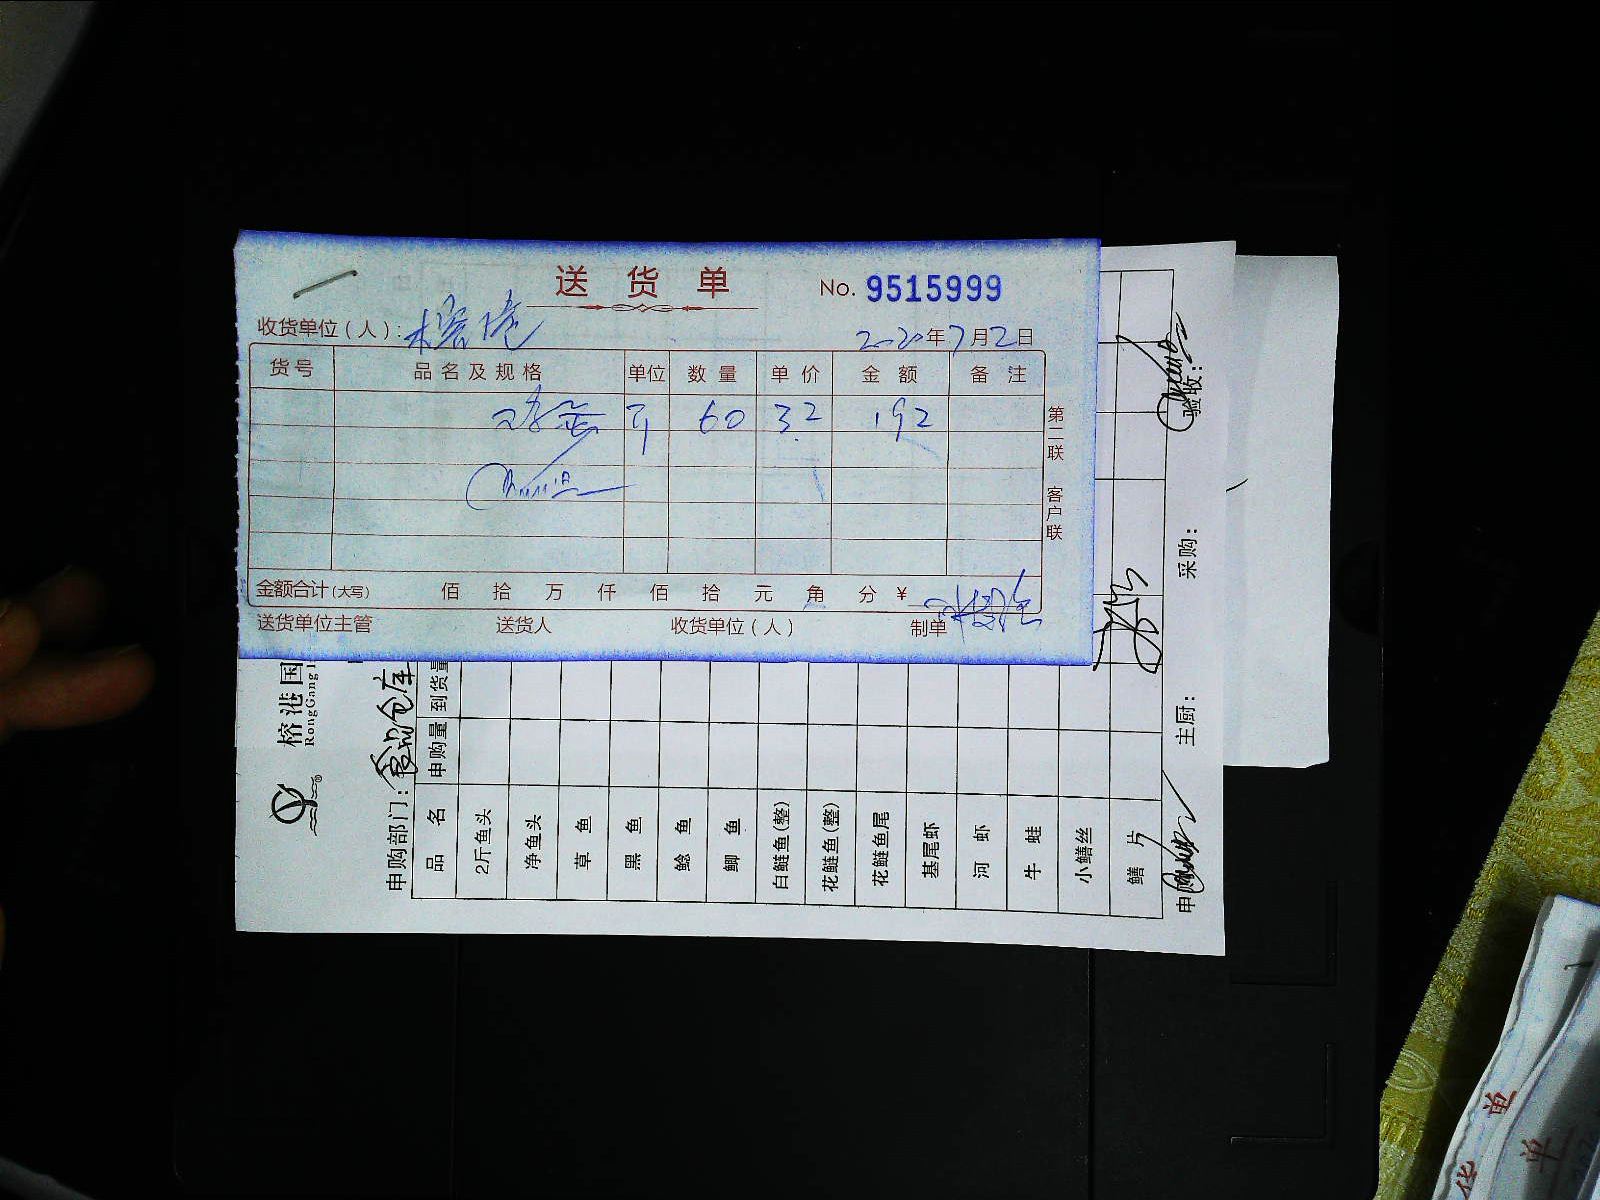 送货单 No. 9515999
收货单位(人): 榕港 2020年7月2日
货号 品名及规格 单位 数量 单价 金额 备注
斤 60 3.2 192
第二联 客户联
金额合计(大写) 佰 拾 万 仟 佰 拾 元 角 分 ¥
送货单位主管 送货人 收货单位(人) 制单
榕港国
RongGang
申购部门: 食品仓库
品名 申购量 到货量
2斤鱼头
净鱼头
草鱼
黑鱼
鲶鱼
鲫鱼
白鲢鱼(整)
花鲢鱼(整)
花鲢鱼尾
基尾虾
河虾
牛蛙
小鳝丝
鳝片
申购 主厨: 采购: 验收:
单
货 单